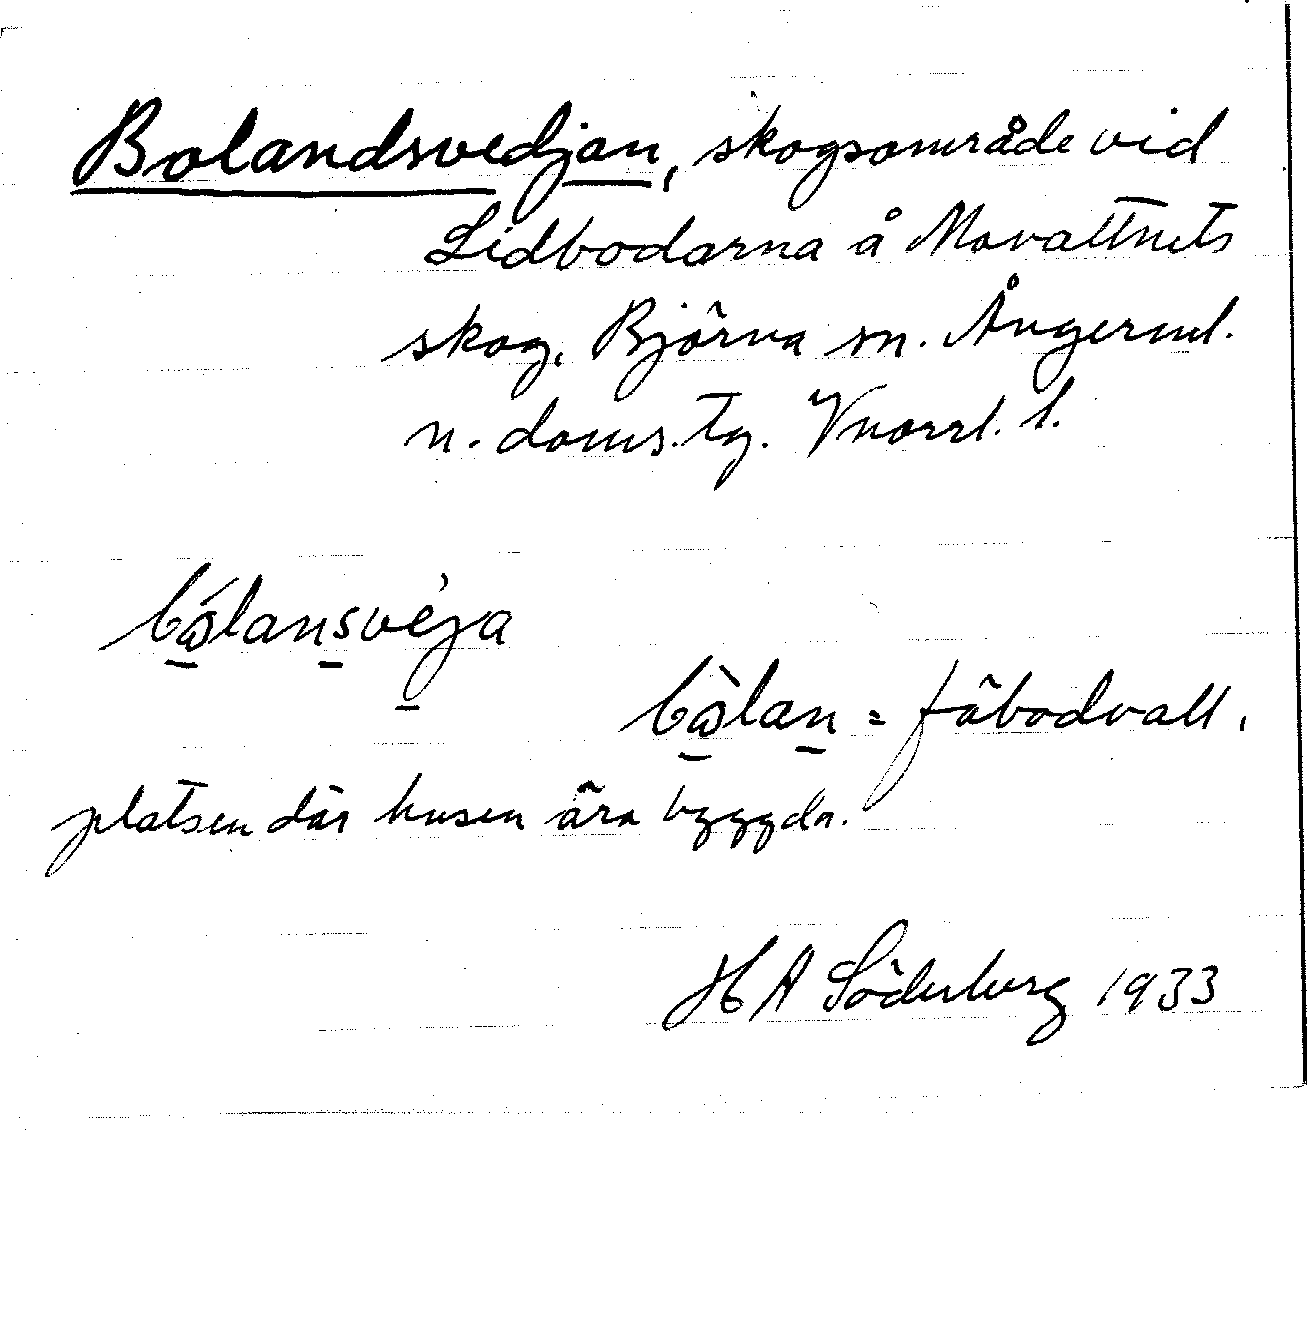 Bolandsvedjan, skogsområde vid
Lidbodarna å Movattnets
skog, Björna sn. Ångerml.
n. doms. tg. Vnorrl. l.
bo̊lansvéja
bo̊̀lan = fäbodvall,
platsen där husen äro byggda.
H A Söderberg 1933